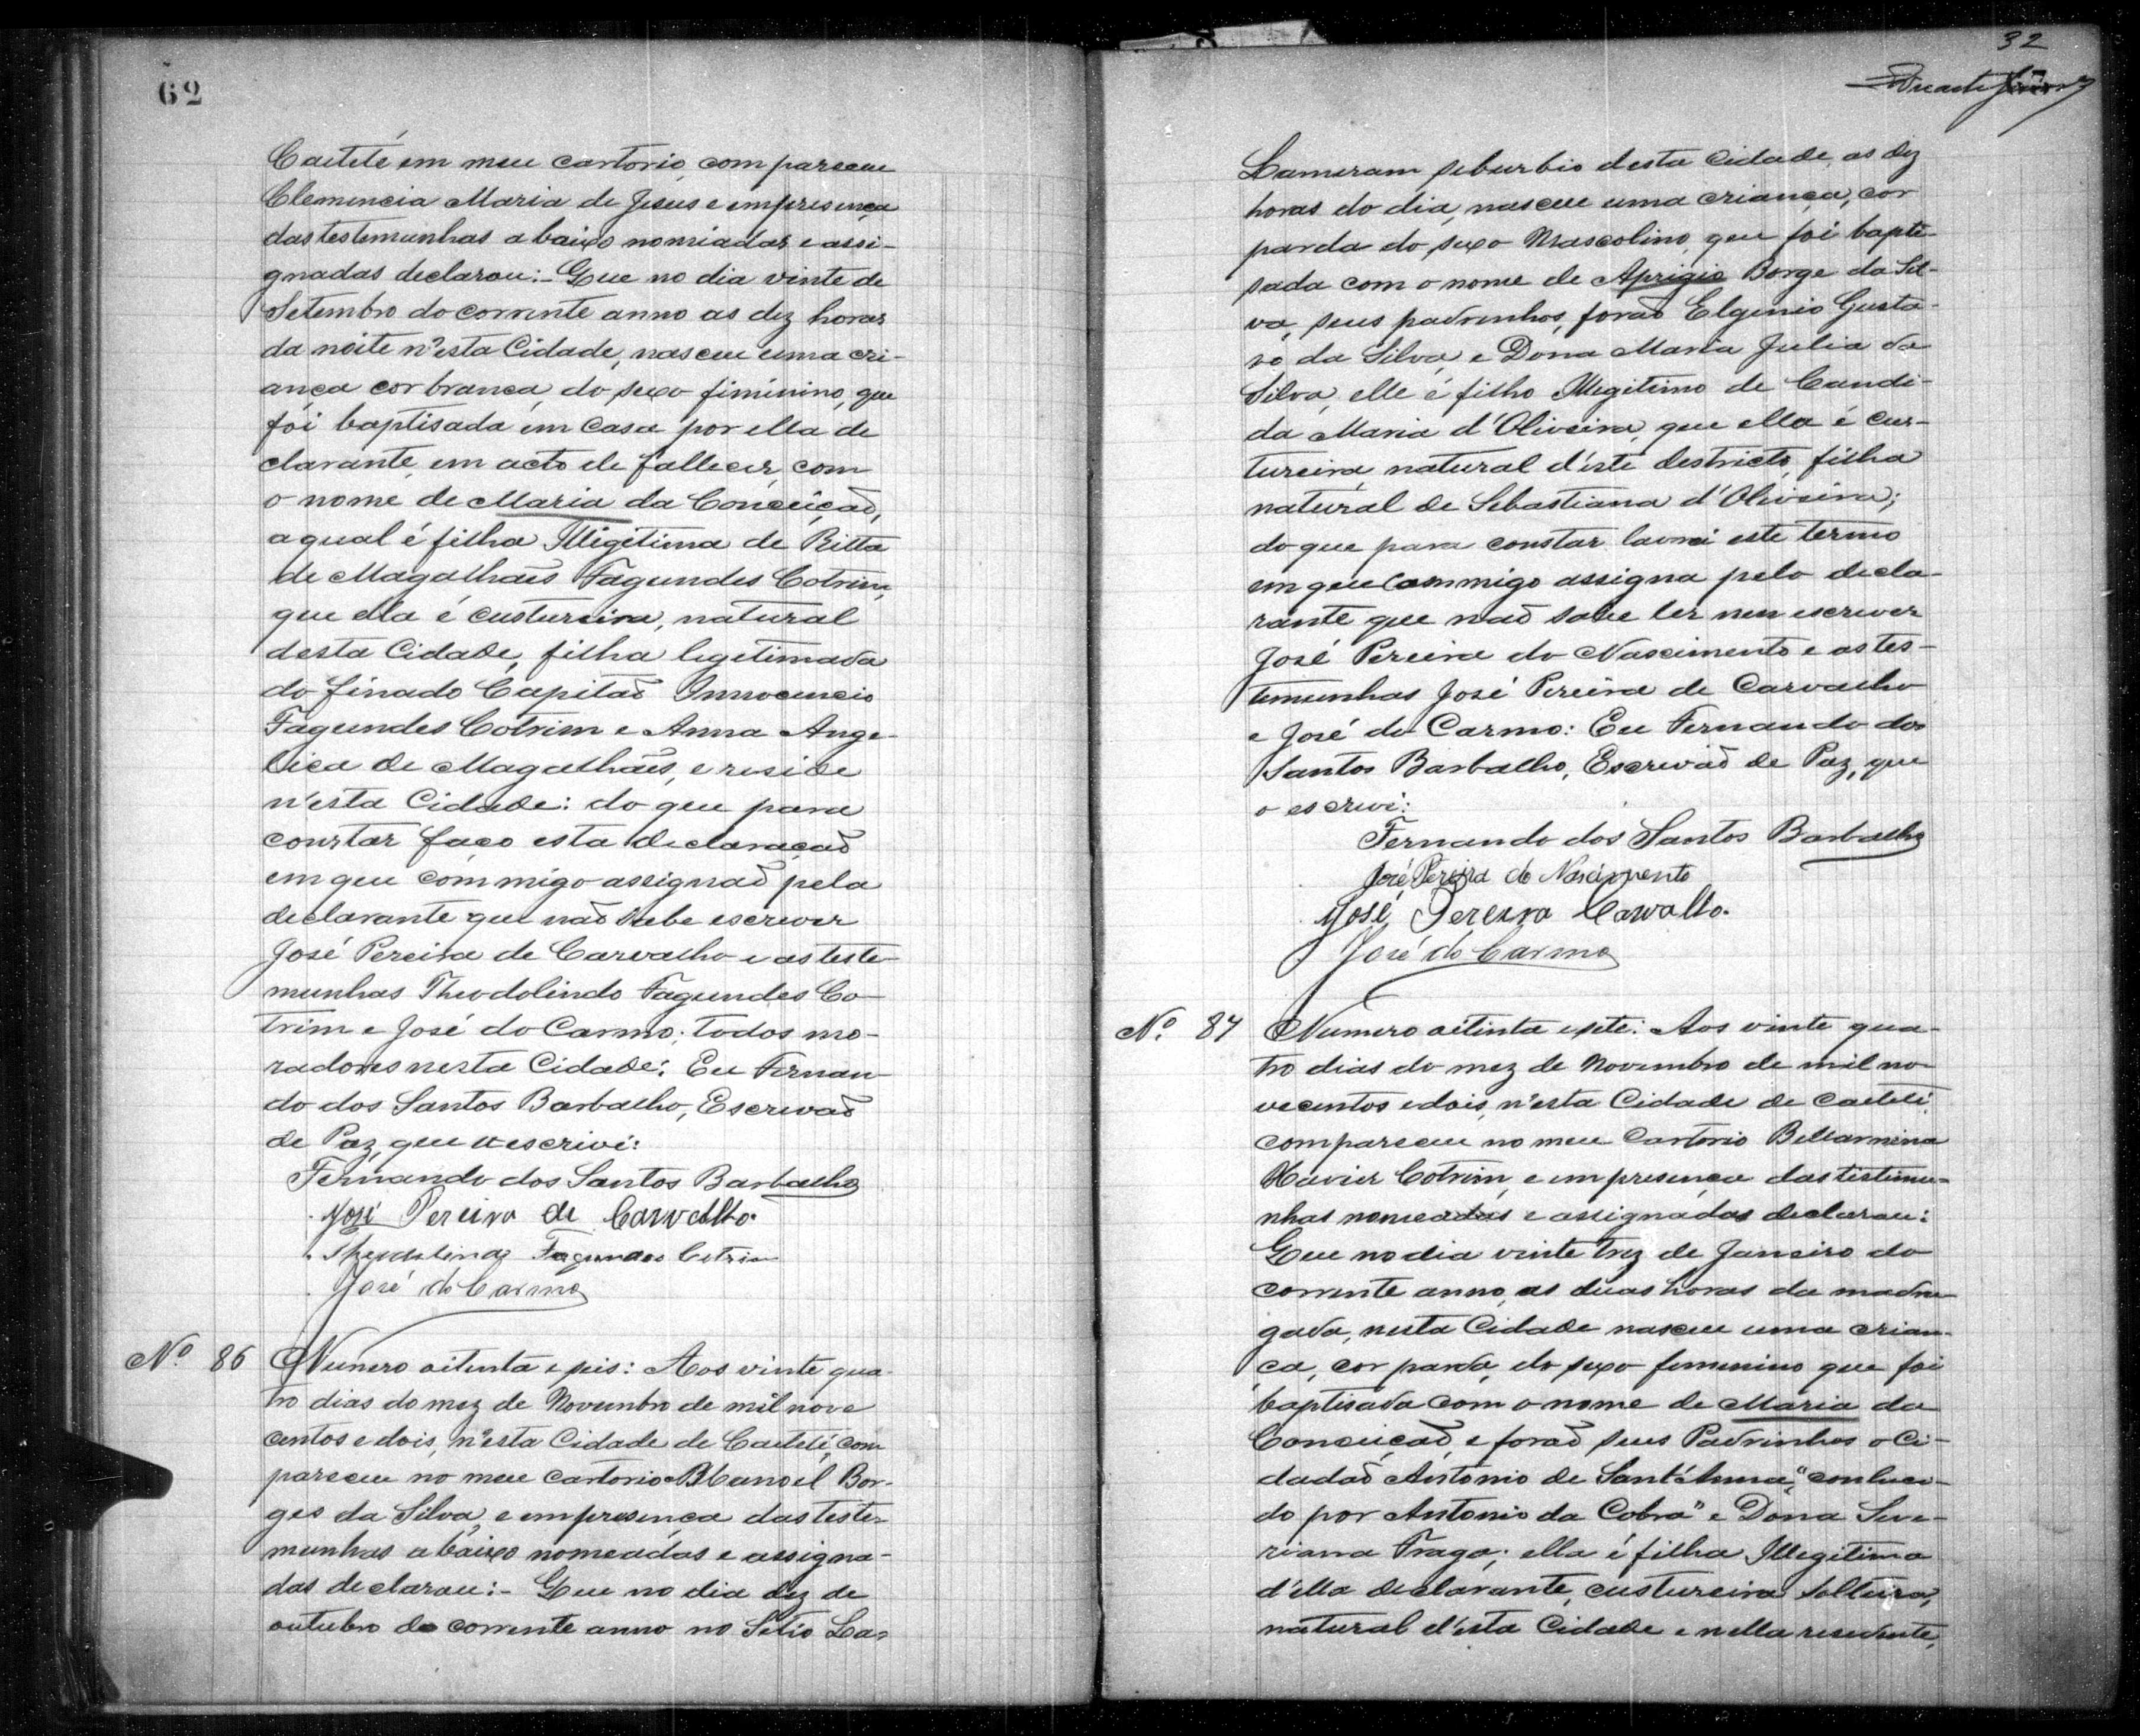 62
Caeteté em meu cartorio, compareceu
Clemencia Maria de Jesus e empresença
das testemunhas abaixo nomiadas e assi-
gnadas declarou:- Que no dia vinte de
Setembro do corrente anno as dez horas
da noite n'esta Cidade, nasceu uma cri-
ança, cor branca, do sexo fiminino, que
foi baptisada em casa por ella de
clarante, em acto de fallecer, com
o nome de Maria da Conceição,
a qual é filha Illigitima de Ritta
de Magalhães Fagundes Cotrim,
que ella é custureira, natural
desta Cidade, filha legetimada
do finado Capitão Innocencio
Fagundes Cotrim e Anna Ange-
lica de Magalhães, e reside
n'esta Cidade: do que para
constar faço esta declaração
em que commigo assignão pela
declarante que não sabe escrever
José Pereira de Carvalho e as teste-
munhas Theodolindo Fagundes Co-
trim e José do Carmo; todos mo-
radores nesta Cidade: Eu Fernan-
do dos Santos Barbalho, Escrivão
de Paz, que o escrivi:
Fernando dos Santos Barbalho
José Pereira de Carvalho.
Theodolindo Fagundes Cotrim
José do Carmo
Nº 86 Numero oitenta e seis: Aos vinte qua-
tro dias do mez de Novembro de mil nove
centos e dois, n'esta Cidade de Caeteté, com
pareceu no meu cartorio Manoel Bor-
ges da Silva, e empresença das teste-
munhas abaixo nomeadas e assigna-
das declarou:- Que no dia dez de
outubro do corrente anno no Sitio La-
32
Lameram suburbio desta Cidade, as dez
horas do dia, nasceu uma criança, cor
parda do sexo Mascolino, que foi bapti-
sada com o nome de Aprigio Borge da Sil-
va, seus padrinhos, forão Elgenio Gusta-
vo da Silva, e Dona Maria Julia da
Silva, elle é filho Illegitimo de Candi-
da Maria d'Oliveira, que ella é cus-
tureira, natural d'este destricto, filha
natural de Sebastiana d'Oliveira;
do que para constar lavrei este termo
em que commigo assigna pelo decla-
rante que não sabe ler nem escrever
José Pereira do Nascimento e as tes-
temunhas José Pereira de Carvalho
e José do Carmo: Eu Fernando dos
Santos Barbalho, Escrivão de Paz, que
o escrivi:
Fernando dos Santos Barbalho
José Pereira do Nascimento
José Pereira Carvalho.
José do Carmo
Nº 87 Numero oitenta e sete: Aos vinte qua-
tro dias do mez de Novembro de mil no-
vecentos e dois, n'esta Cidade de Caeteté
compareceu no meu Cartorio Bellarmina
Xavier Cotrim, e empresença das testemu-
nhas nomeadas e assignadas declarou:
Que no dia vinte trez de Janeiro do
corrente anno, as duas horas da madru-
gada, nesta Cidade nasceu uma crian-
ça, cor parda, do sexo femenino que foi
baptisada com o nome de Maria da
Conceição, e forão seus Padrinhos o Ci-
dadão Antonio de Sant'Anna, "conheci-
do por Antonio da Cobra" e Dona Seve-
riana Fraga; ella é filha Illegitima
d'ella declarante, custureira solteira,
natural d'esta Cidade e nella residente,